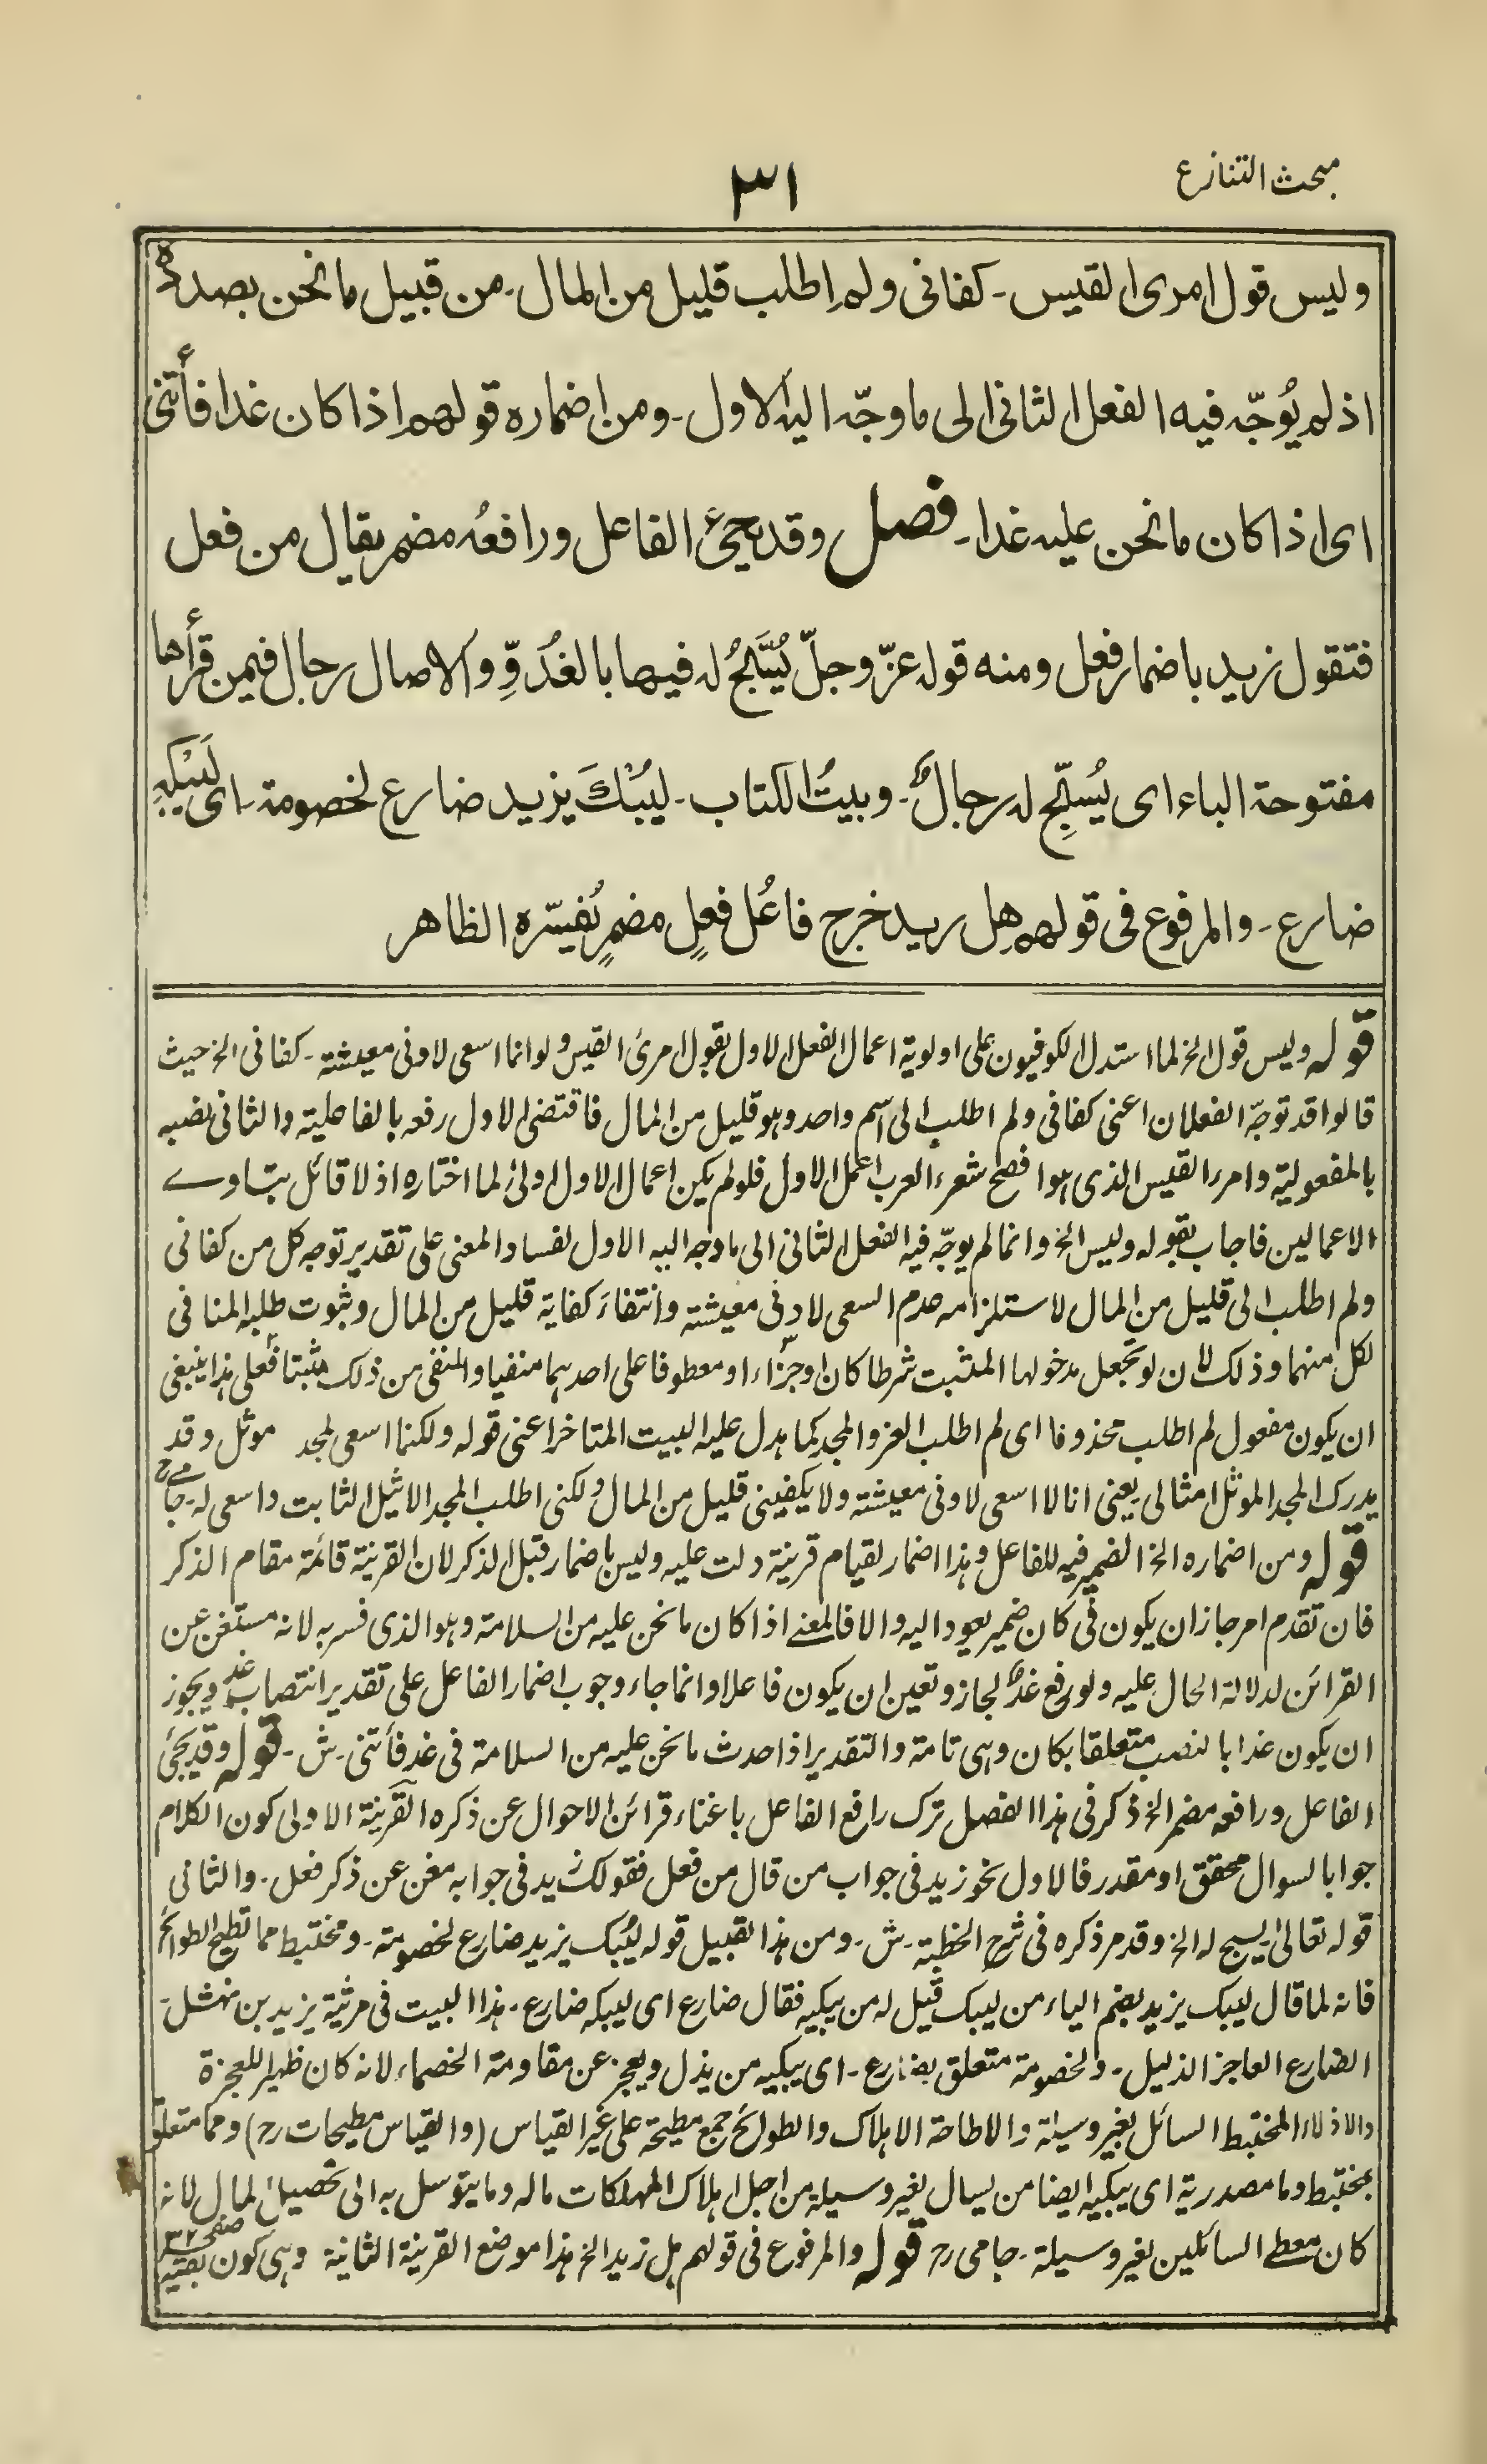 مبحث التنازع
٣١
وليس قول امرئ القيس - كفانى ولم اطلب قليل من المال - من قبيل ما نحن بصدده
اذ لم يُوجّه فيه الفعل الثانى الى ما وجّه اليه الاول - ومن اضماره قولهم اذا كان غدا فأتنى
اى اذا كان ما نحن عليه غدا - فصل وقد يجئ الفاعل ورافعُه مضمر يقال من فعل
فتقول زيد باضمار فعل ومنه قوله عزّ وجلّ يُسَبَّحُ له فيها بالغُدُوِّ والاصال رجال فيمن قرأها
مفتوحة الباء اى يُسبِّح له رجالٌ - وبيتُ الكتاب - ليُبْكَ يزيد ضارع لخصومة - اى لَيَبْكِهِ
ضارع - والمرفوع فى قولهم هل زيد خرج فاعُل فعلٍ مضمرٍ يُفسّره الظاهر
قوله وليس قول الخ لما استدل الكوفيون على اولوية اعمال الفعل الاول بقول امرئ القيس ولو انما اسعى لادنى معيشته - كفانى الخ حيث
قالوا قد توجّه الفعلان اعنى كفانى ولم اطلب الى اسم واحد وهو قليل من المال فاقتضى الاول رفعه بالفاعلية والثانى نصبه
بالمفعولية وامرء القيس الذى هو افصح شعراء العرب اعمل الاول فلو لم يكن اعمال الاول اولىٰ لما اختاره اذ لا قائل بتساوے
الاعمالين فاجاب بقوله وليس الخ وانما لم يوجّه فيه الفعل الثانى الى ما وجه اليه الاول لفساد المعنى على تقدير توجه كل من كفانى
ولم اطلب الى قليل من المال لاستلزامه عدم السعى لادنى معيشته وانتفاءَ كفاية قليل من المال وثبوت طلبه المنافى
لكل منهما وذلك لان لو تجعل مدخولها المثبت شرطا كان او جزاء او معطوفا على احدهما منفيا والمنفى من ذلك مثبتا فعلى هذا ينبغى
ان يكون مفعول لم اطلب محذوفا اى لم اطلب العز والمجد كما يدل عليه البيت المتاخر اعنى قوله ولكنما اسعى لمجد موثل وقد
يدرك المجد الموثل امثالى يعنى انا لا اسعى لادنى معيشته ولا يكفينى قليل من المال ولكنى اطلب المجد الاثيل الثابت واسعى له - جامے رح
قوله ومن اضماره الخ الضمير فيه للفاعل وهذا اضمار لقيام قرينة دلت عليه وليس باضمار قبل الذكر لان القرينة قائمة مقام الذكر
فان تقدم امر جاز ان يكون فى كان ضمير يعود اليه والا فالمعنے اذا كان ما نحن عليه من السلامة وهو الذى فسر به لانه مستغن عن
القرائن لدلالة الحال عليه ولو رفع غدٌ لجاز وتعين ان يكون فاعلا وانما جاء وجوب اضمار الفاعل على تقدير انتصاب غد ويجوز
ان يكون غدا بالنصب متعلقا بكان وهى تامة والتقدير اذا حدث ما نحن عليه من السلامة فى غد فأتنى - ش - قوله وقد يجئ
الفاعل ورافعه مضمر الخ ذكر فى هذا الفصل ترك رافع الفاعل باغناء قرائن الاحوال عن ذكره القرينة الاولى كون الكلام
جوابا لسوال محقق او مقدر فالاول نحو زيد فى جواب من قال من فعل فقولك زيد فى جوابه مغن عن ذكر فعل - والثانى
قوله تعالىٰ يسبح له الخ وقد مر ذكره فى شرح الخطبة - ش - ومن هذا القبيل قوله ليُبك يزيد ضارع لخصومته - ومختبط مما تطيح الطوائح
فانه لما قال ليبك يزيد بضم الياء من ليبك قيل له من يبكيه فقال ضارع اى ليبكه ضارع - هذا البيت فى مرثية يزيد بن نهشل -
الضارع العاجز الذليل - ولخصومة متعلق بضارع - اى يبكيه من يذل ويعجز عن مقاومة الخصماء لانه كان ظهيرا للعجزة
والاذلاء المختبط السائل بغير وسيلة والاطاحة الاهلاك والطوائح جمع مطيحة على غير القياس (والقياس مطيحات رح) ومما متعلق
بمختبط وما مصدرية اى يبكيه ايضا من يسال بغير وسيلة من اجل اهلاك المهلكات ماله وما يتوسل به الى تحصيل المال لانه
كان معطے السائلين بغير وسيلة - جامى رح قوله والمرفوع فى قولهم هل زيد الخ هذا موضع القرينة الثانية وهى كون بقيه صفحه ٣٢